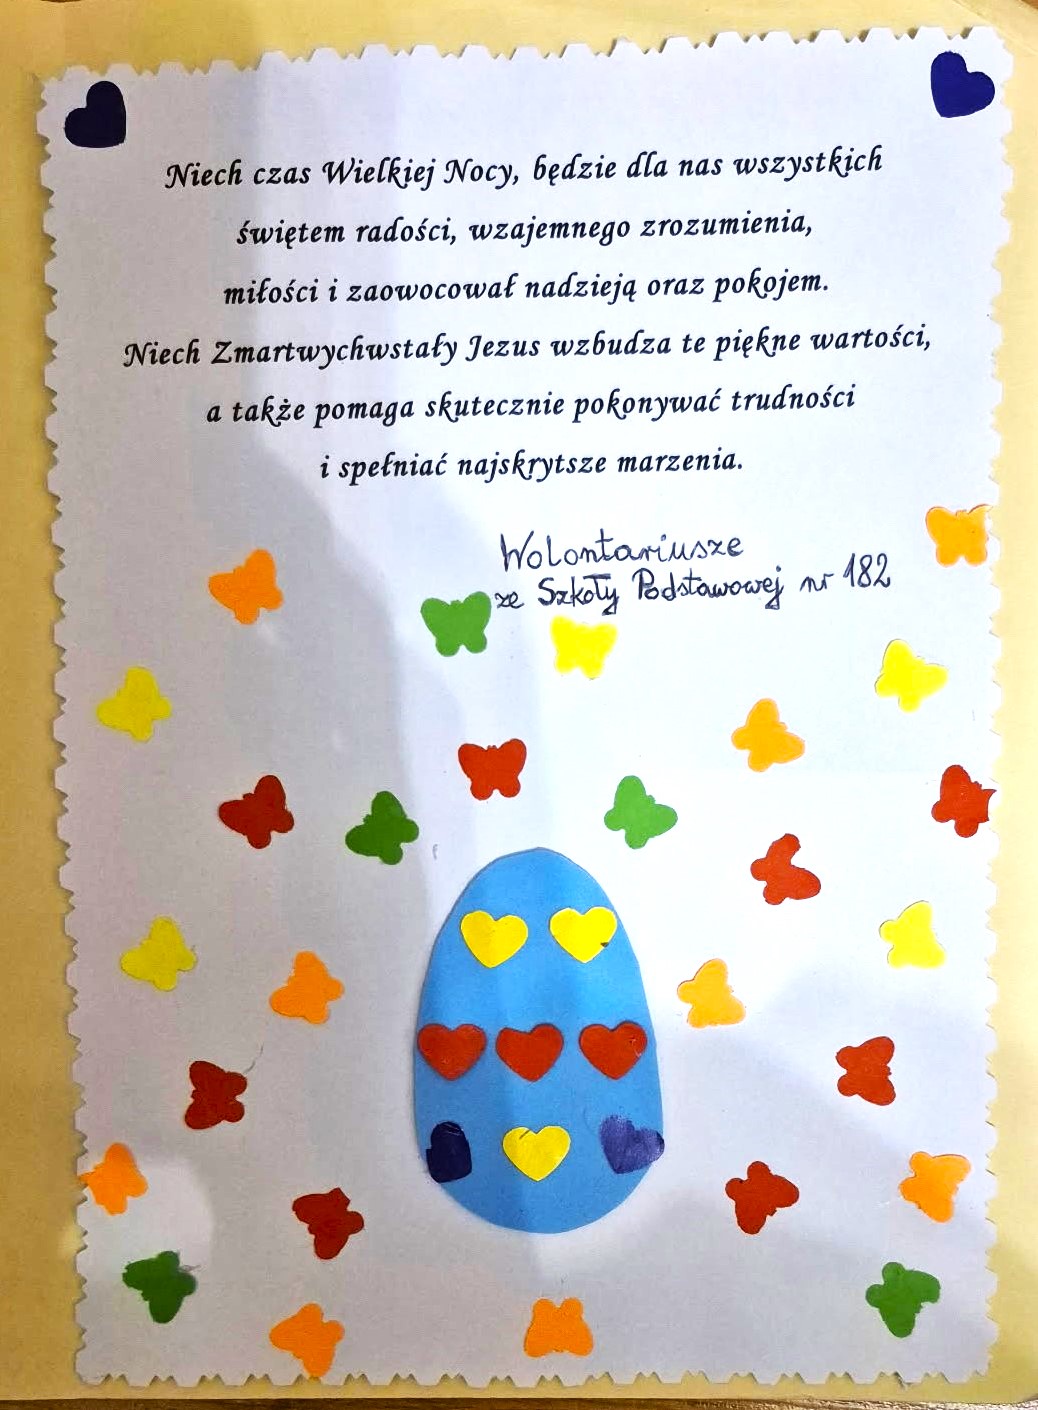 Niech czas Wielkiej Nocy, będzie dla nas wszystkich
świętem radości, wzajemnego zrozumienia,
miłości i zaowocował nadzieją oraz pokojem.
Niech Zmartwychwstały Jezus wzbudza te piękne wartości,
a także pomaga skutecznie pokonywać trudności
i spełniać najskrytsze marzenia.
Wolontariusze
ze Szkoły Podstawowej nr 182